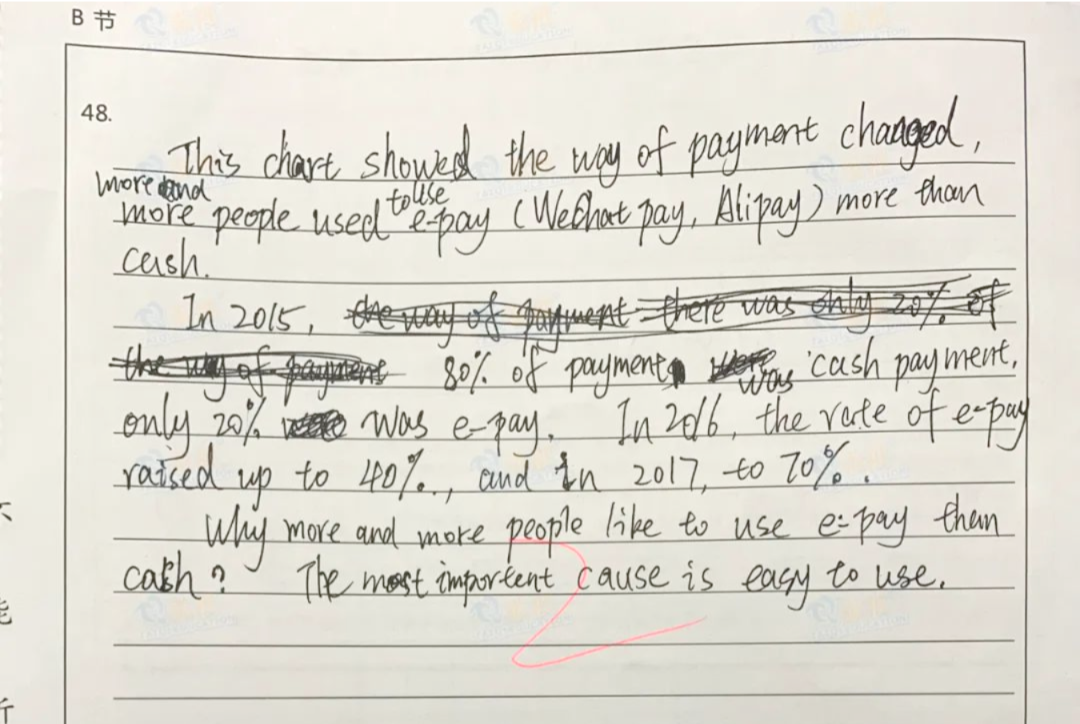 B 节
48.
This chart showed the way of payment changed,
more and
more people used to use e-pay (WeChat pay, Alipay) more than
cash.
In 2015, the way of payment there was only 20% of
the way of payment 80% of payment was cash payment,
only 20% was e-pay. In 2016, the rate of e-pay
raised up to 40%., and in 2017, to 70%.
Why more and more people like to use e-pay then
cash? The most importent cause is easy to use.